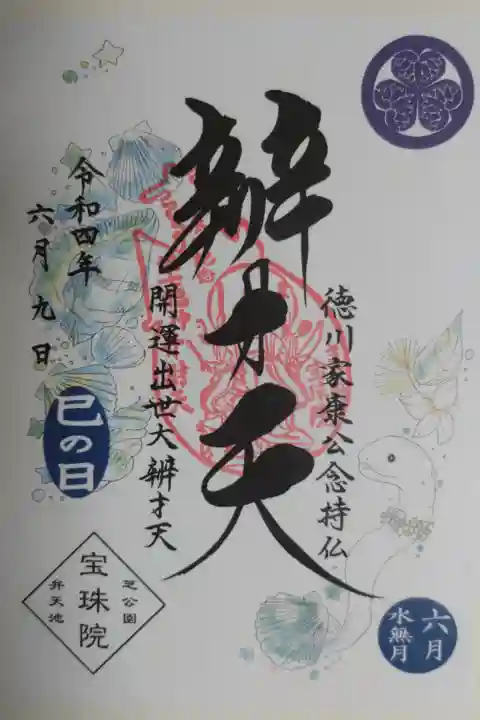 徳川家康公念持仏
辨才天
開運出世大辨才天
令和四年
六月九日
巳の日
芝公園
宝珠院
弁天池
六月
水無月